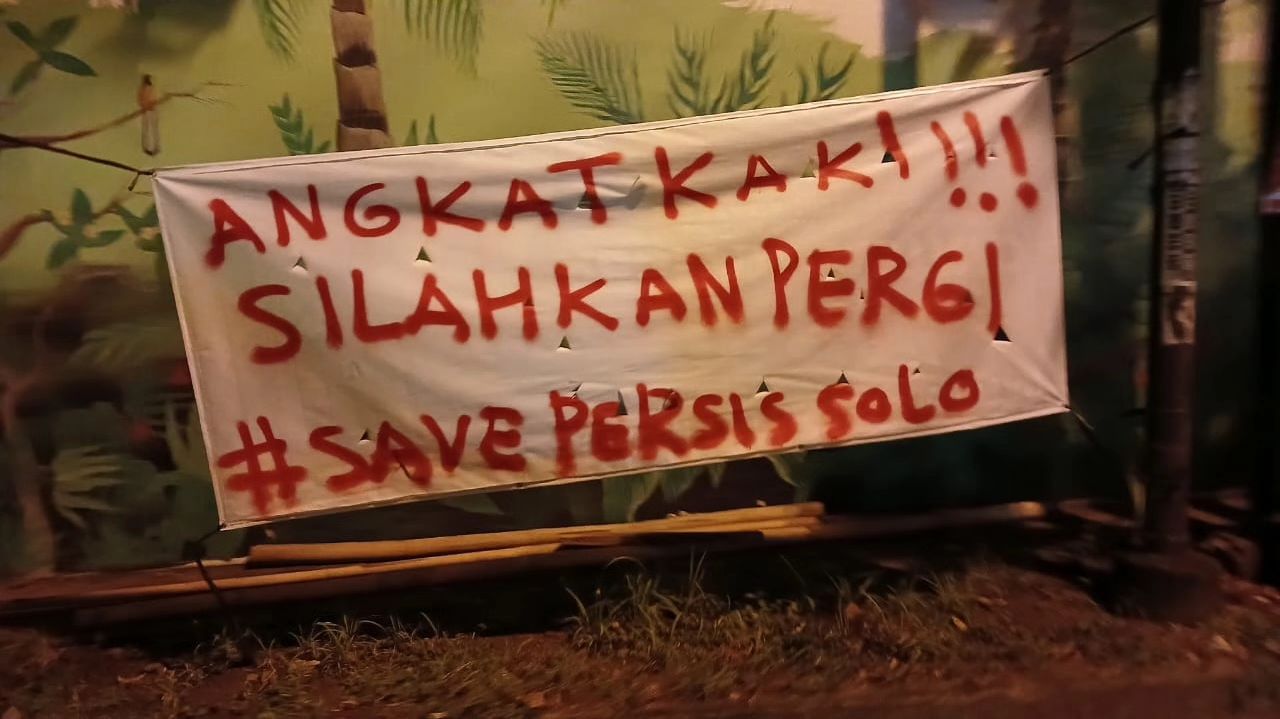 ANGKAT KAKI!!!
SILAHKAN PERGI
#SAVE PERSIS SOLO